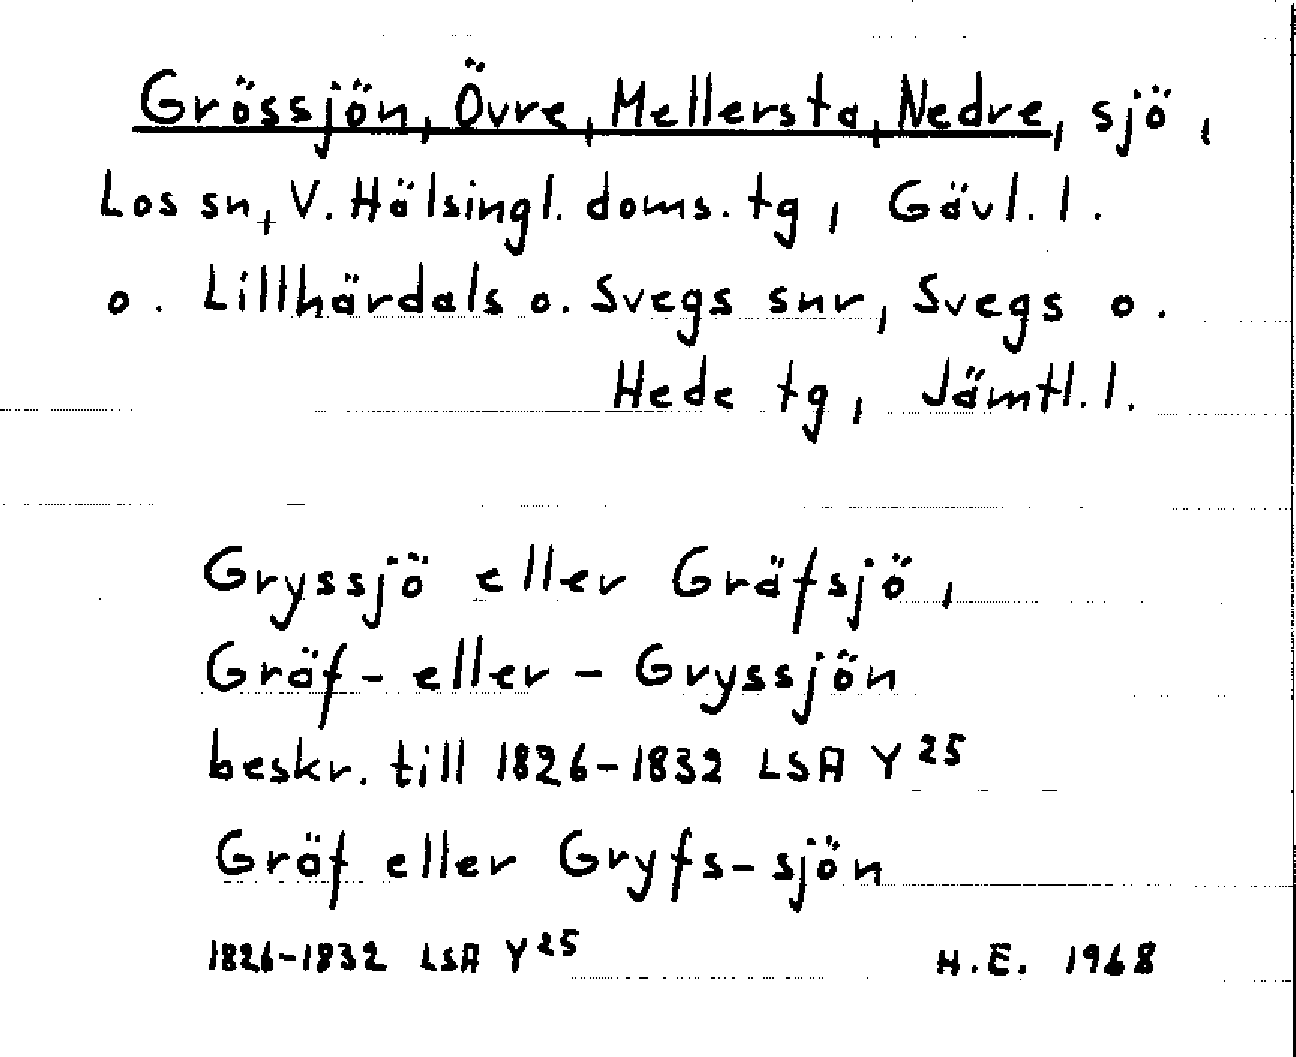 Grössjön, Övre, Mellersta, Nedre, sjö,
Los sn, V. Hälsingl. doms. tg, Gävl. l.
o. Lillhärdals o. Svegs snr, Svegs o.
Hede tg, Jämtl. l.
Gryssjö eller Gräfsjö,
Gräf- eller - Gryssjön
beskr. till 1826-1832 LSA Y 25
Gräf eller Gryfs-sjön
1826-1832 LSA Y 25 H.E. 1968